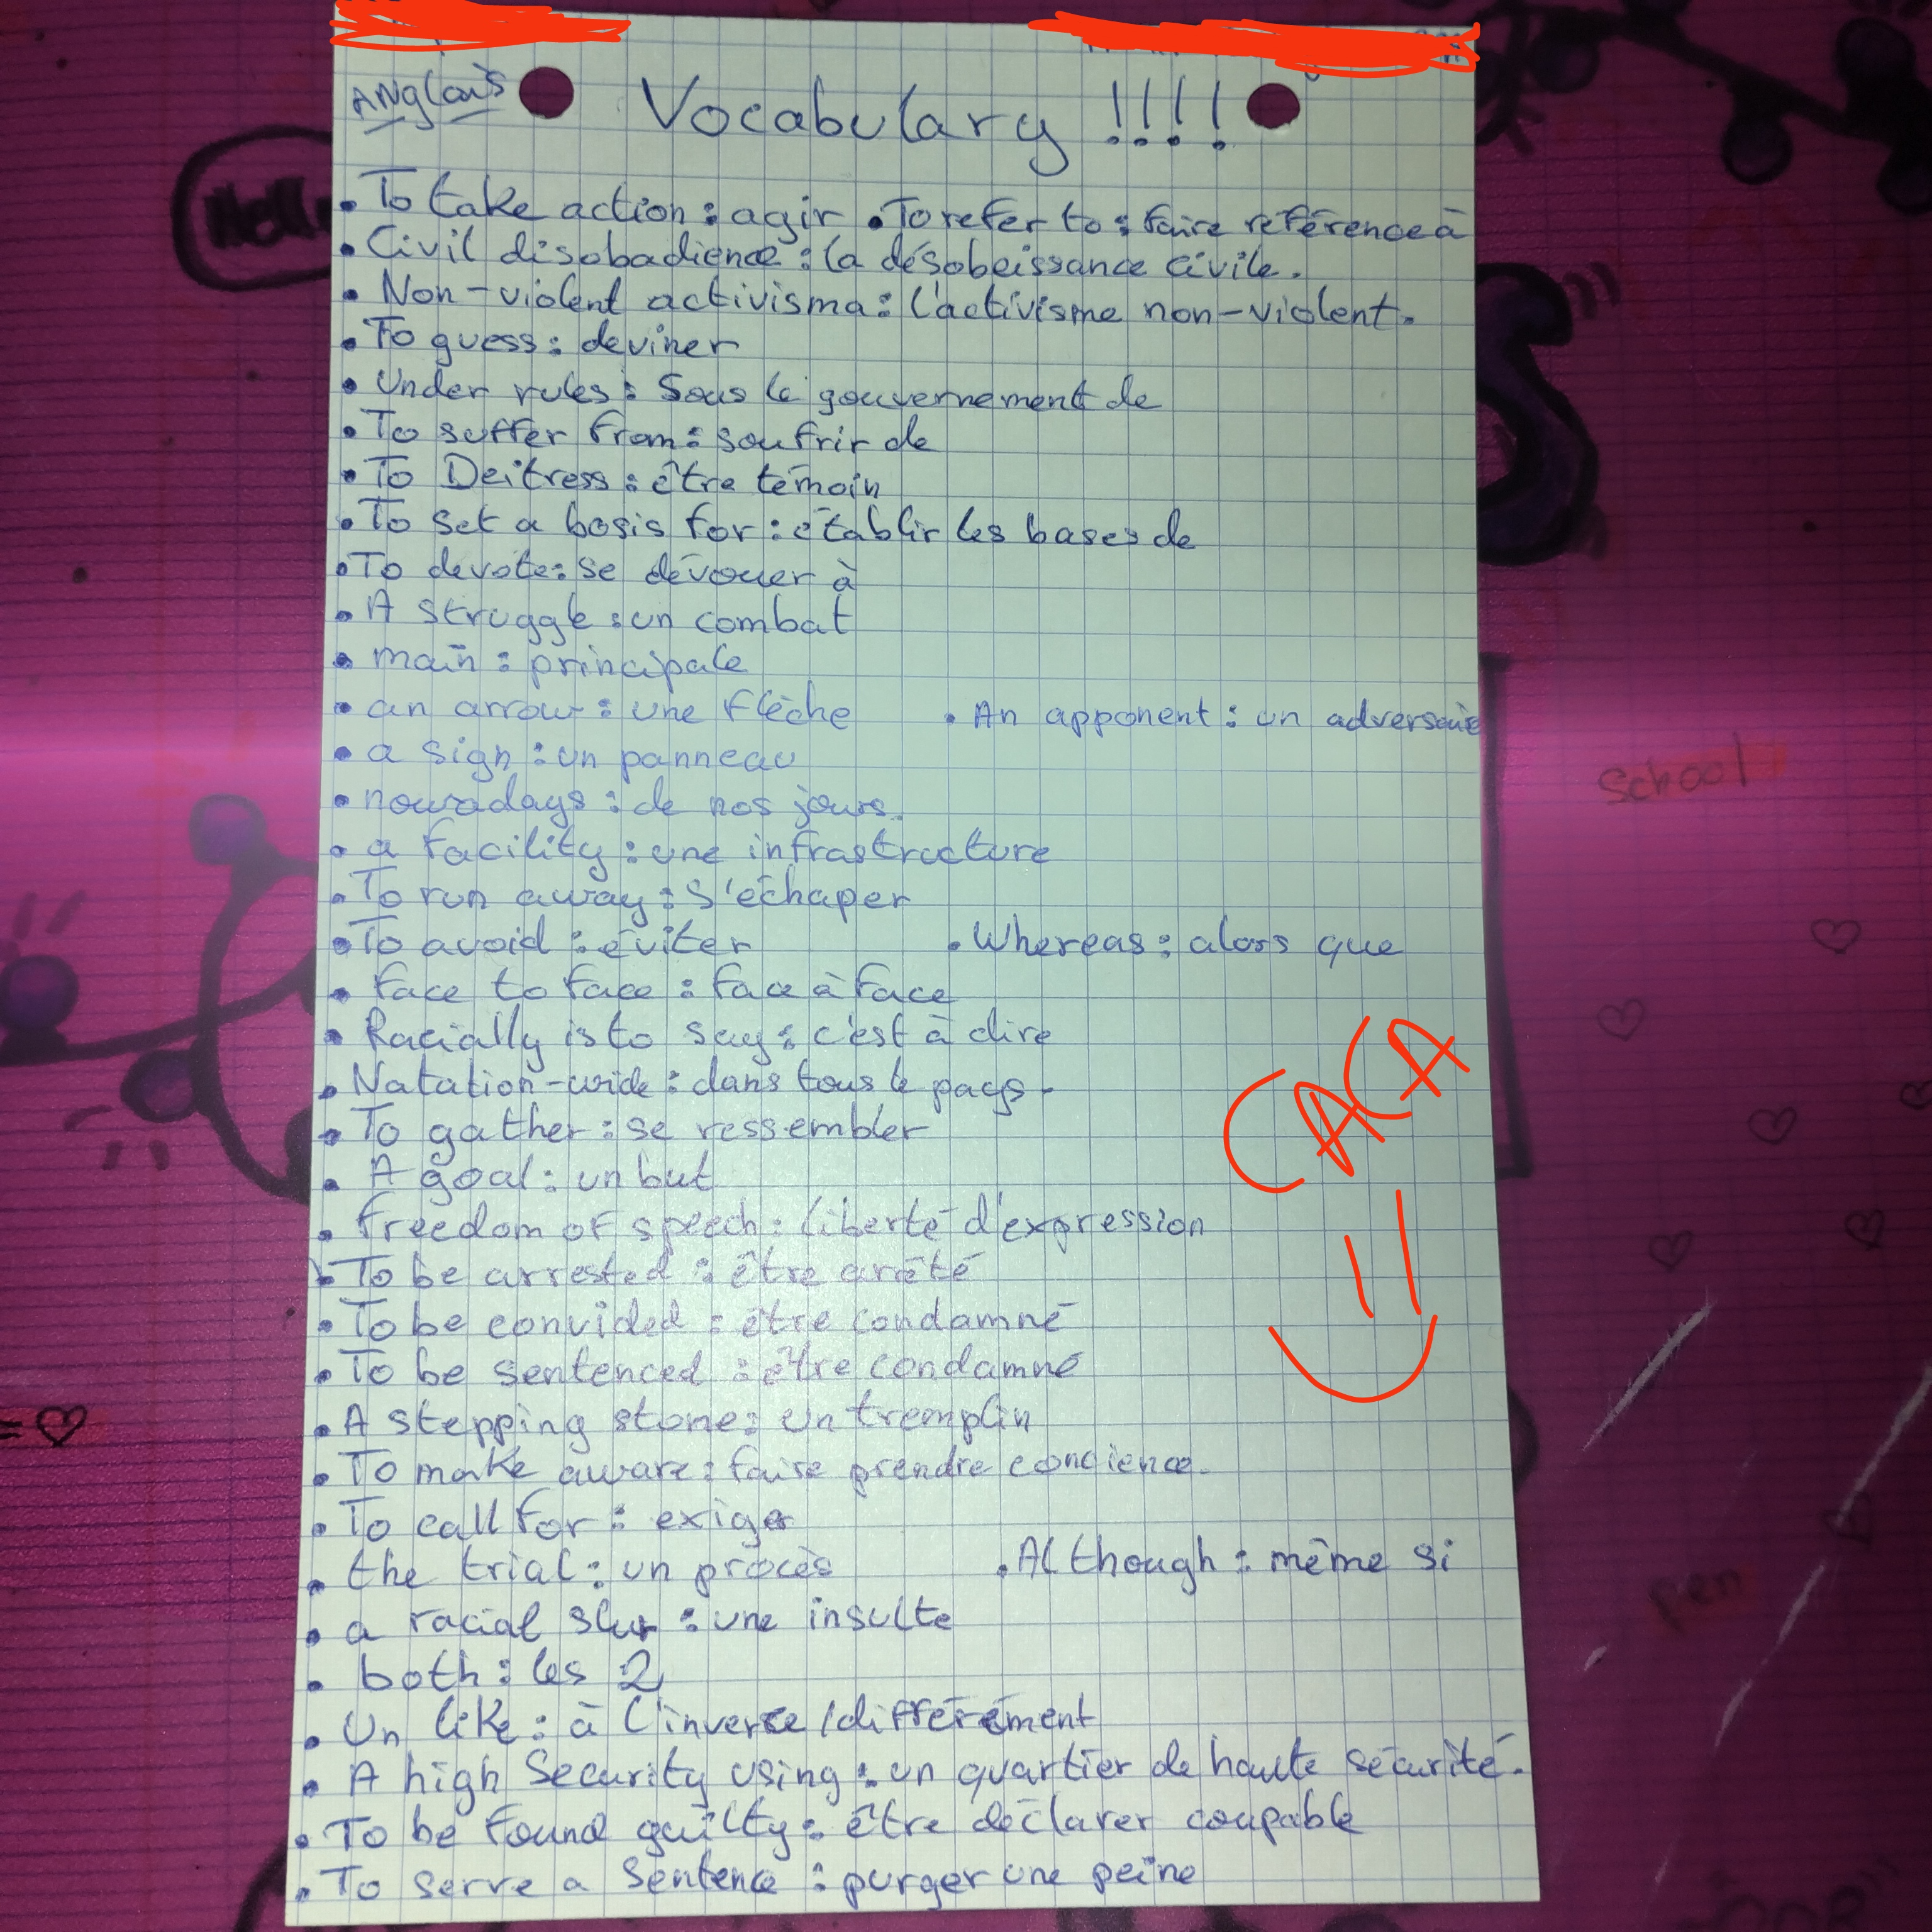 Anglais
Vocabulary !!!!
• To take action : agir • To refer to : faire référence à
• Civil disobadience : la désobeissance civile.
• Non-violent activisma : l'activisme non-violent.
• To guess : deviner
• Under rules : Sous le gouvernement de
• To suffer from : soufrir de
• To Deitress : être témoin
• To set a bosis for : établir les bases de
• To devote : se dévouer à
• A struggle : un combat
• main : principale
• an arrow : une flèche • An apponent : un adversaire
• a sign : un panneau
• nowadays : de nos jours.
• a facility : une infrastructure
• To run away : s'échaper
• To avoid : éviter • Whereas : alors que
• Face to face : face à face
• Racially is to say : c'est à dire
• Natation-wide : dans tous le pays.
• To gather : se ressembler
• A goal : un but
• Freedom of speech : liberté d'expression
• To be arrested : être arrêté
• To be convided : être condamné
• To be sentenced : être condamné
• A stepping stone : un tremplin
• To make aware : faire prendre concience.
• To call for : exiger
• the trial : un procès • Although : même si
• a racial slur : une insulte
• both : les 2
• Un like : à l'inverse / différement
• A high Security using : un quartier de haute sécurité.
• To be found guilty : être déclarer coupable
• To serve a sentence : purger une peine
CACA
=)
Hello
School
pen